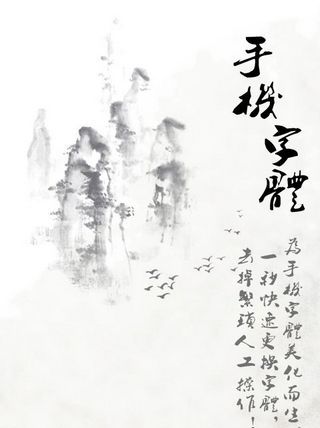 手機字體
為手機字體美化而生，
一秒快速更換字體，
去掉繁瑣人工操作！